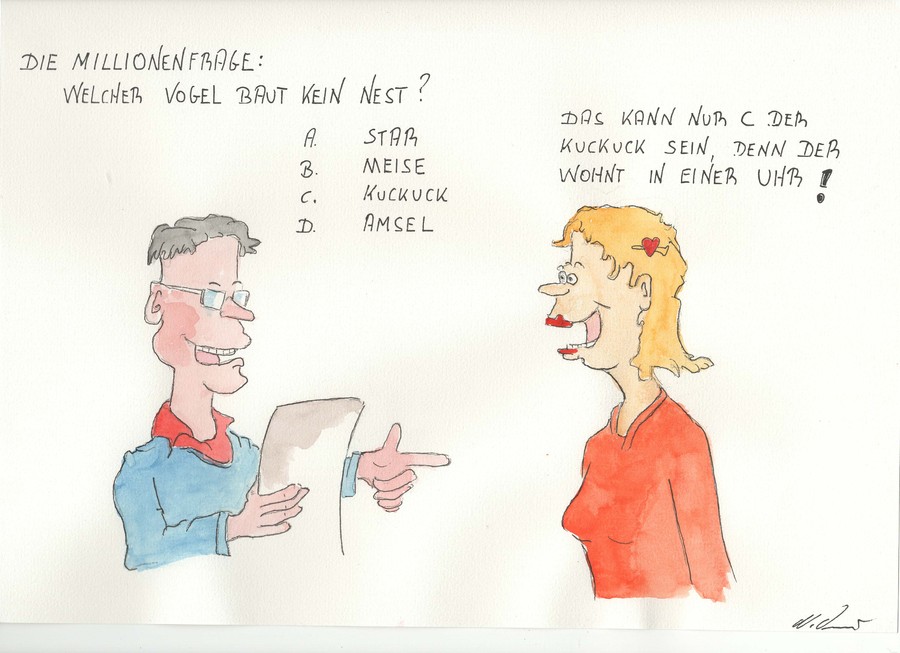 DIE MILLIONENFRAGE:
WELCHER VOGEL BAUT KEIN NEST?
A. STAR
B. MEISE
C. KUCKUCK
D. AMSEL
DAS KANN NUR C DER
KUCKUCK SEIN, DENN DER
WOHNT IN EINER UHR!